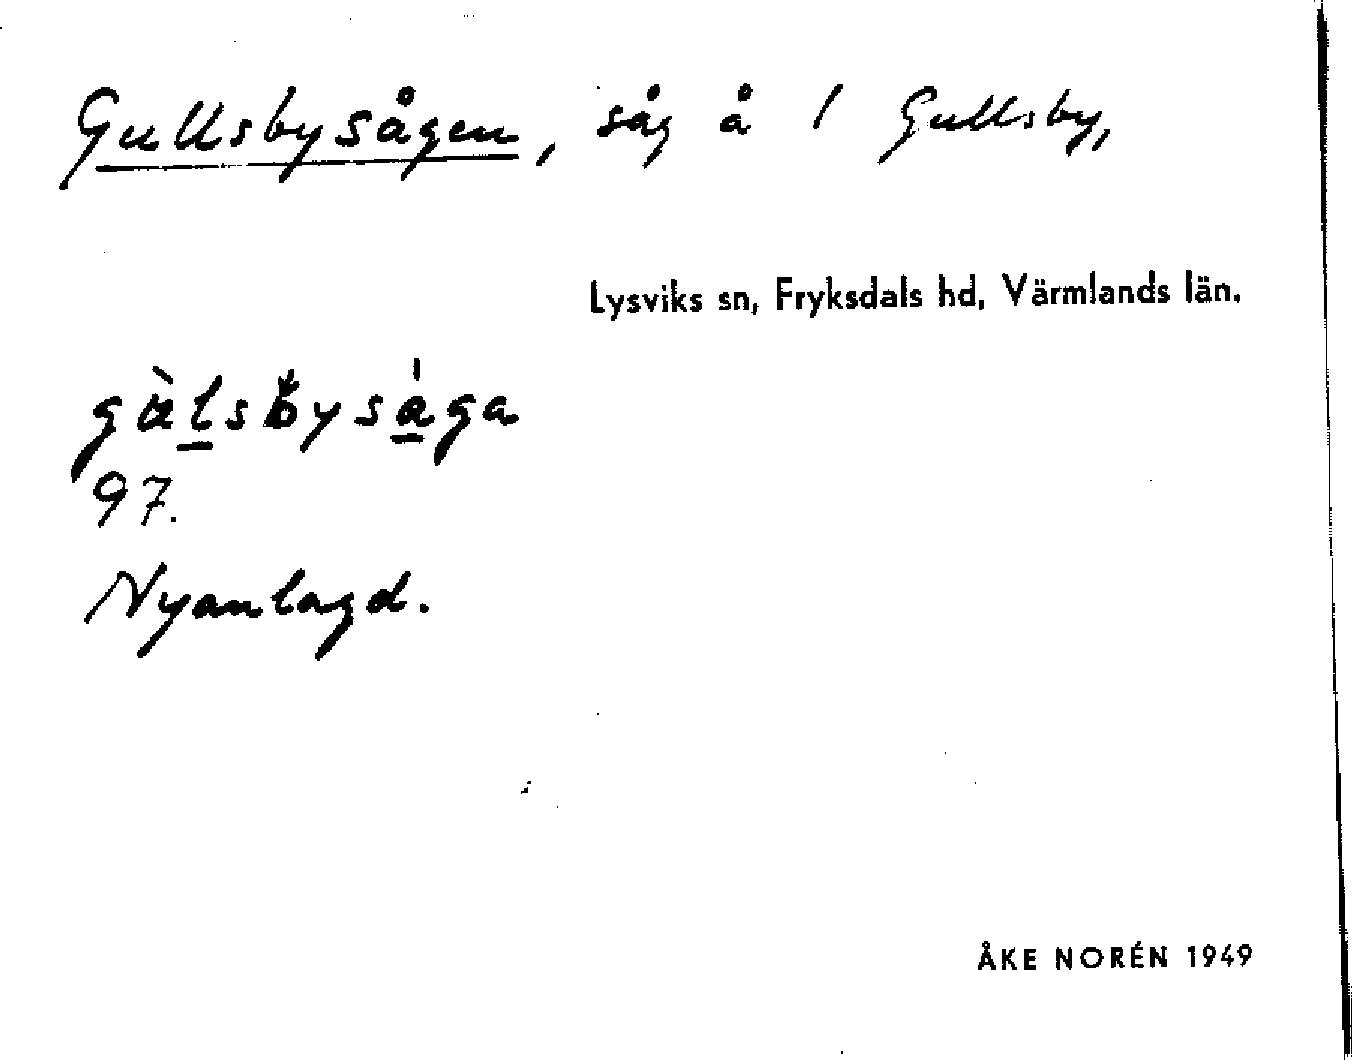 Gullsbysågen, såg å 1 Gullsby,
Lysviks sn, Fryksdals hd, Värmlands län.
gàlsbysága
97.
Nyanlagd.
ÅKE NORÉN 1949